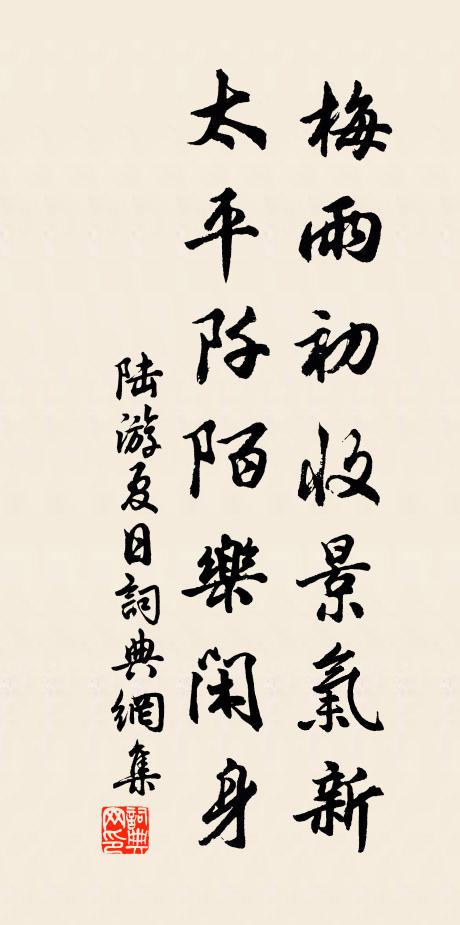 梅雨初收景氣新
太平阡陌樂閑身
陆游夏日詞典網集
詞典网印